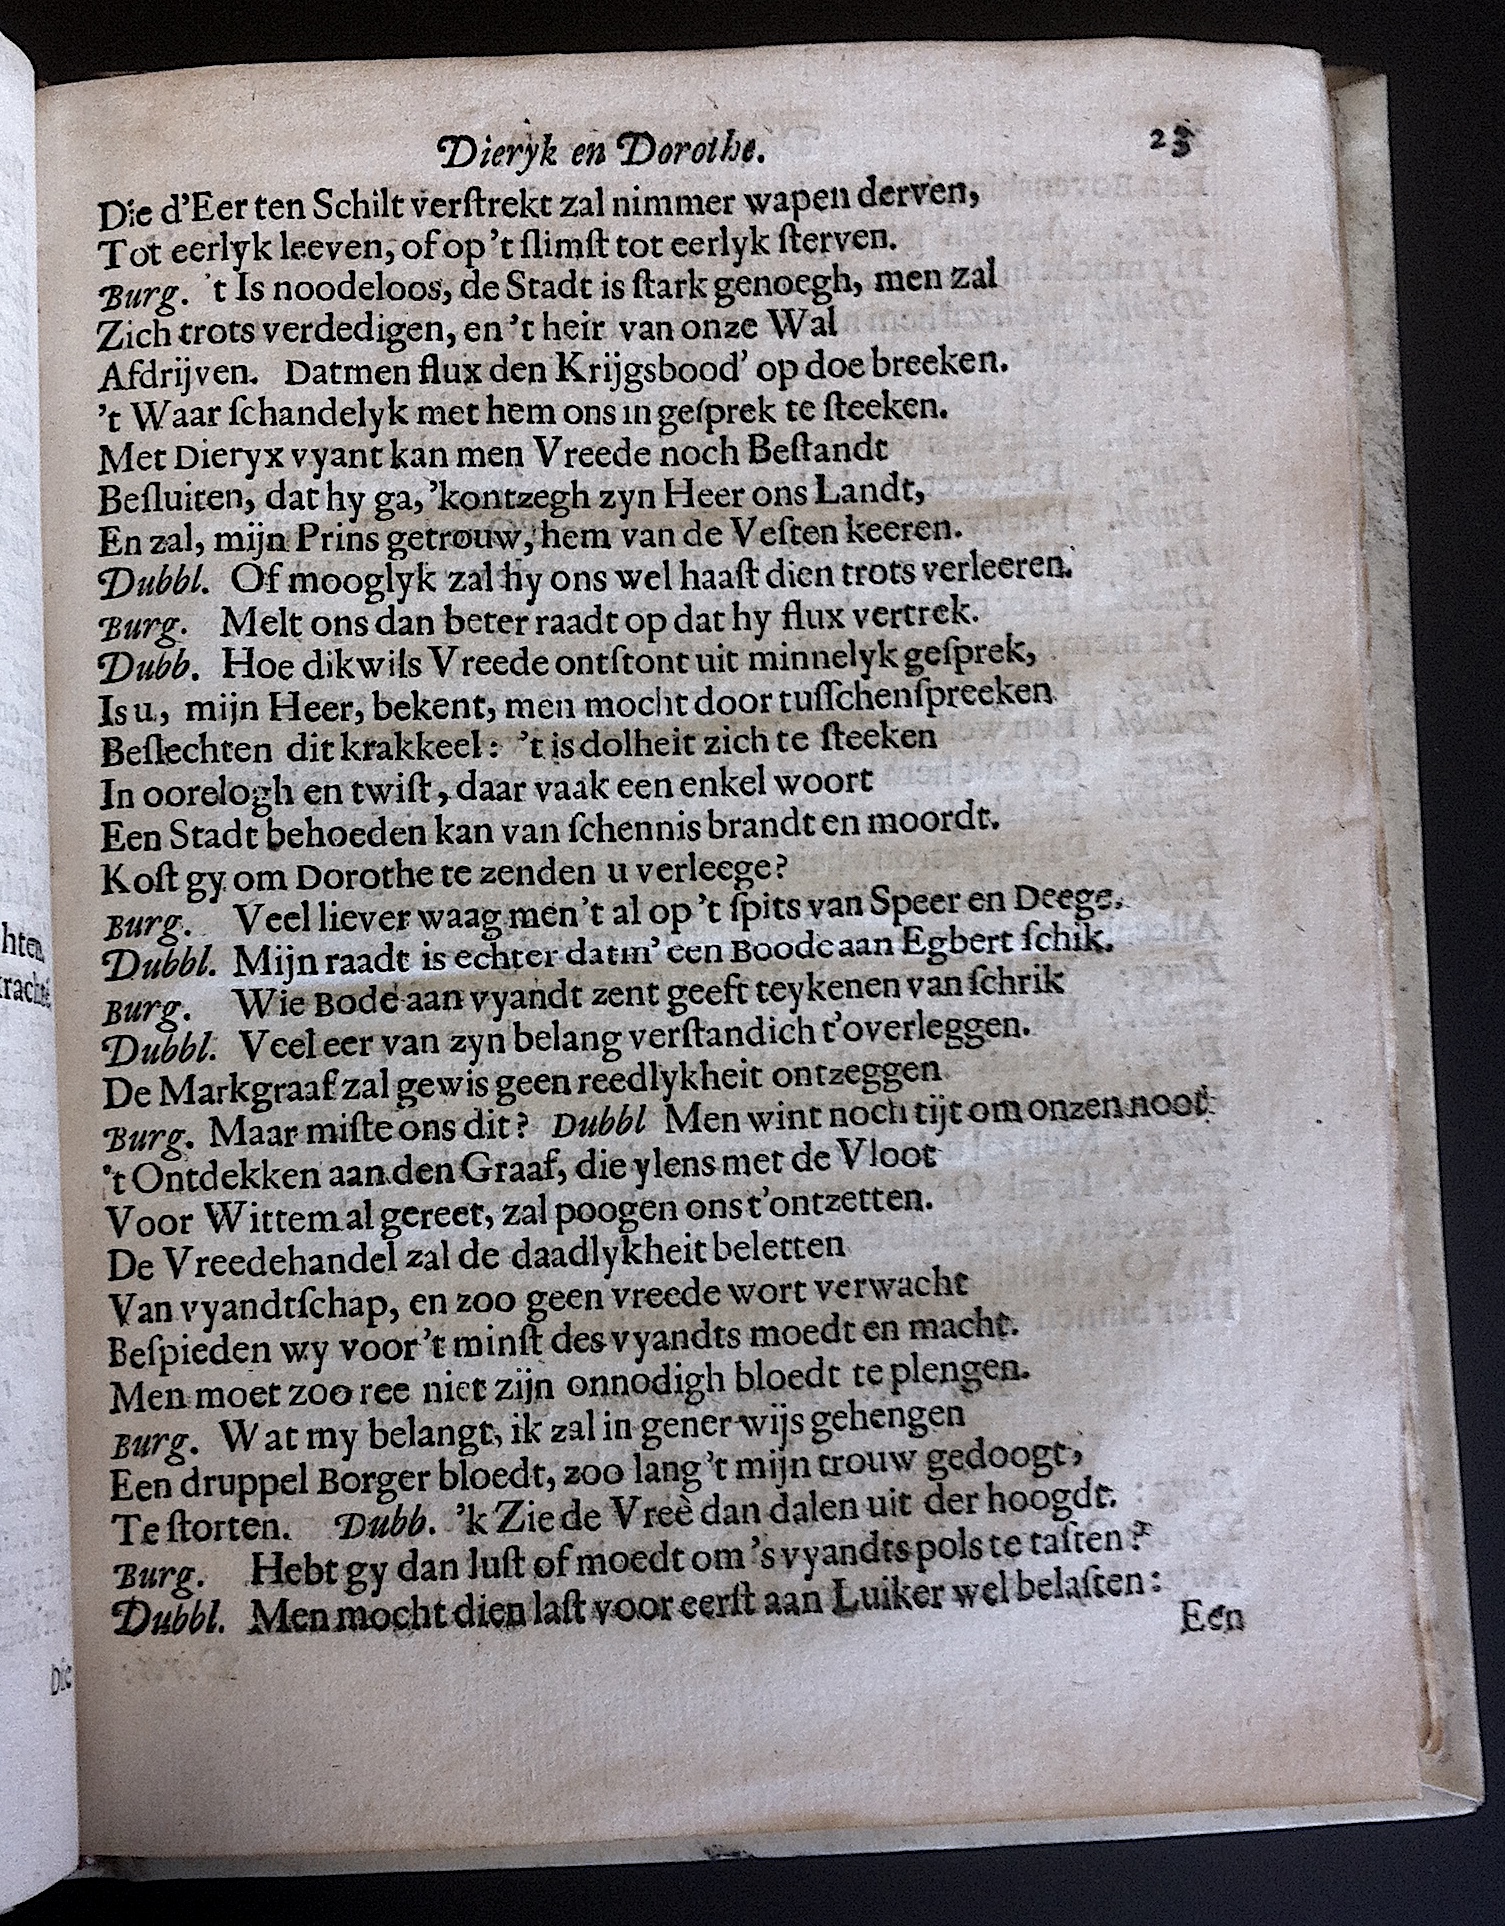 Dieryk en Dorothe. 23
Die d'Eer ten Schilt verſtrekt zal nimmer wapen derven,
Tot eerlyk leeven, of op 't ſlimſt tot eerlyk ſterven.
Burg. 't Is noodeloos, de Stadt is ſtark genoegh, men zal
Zich trots verdedigen, en 't heir van onze Wal
Afdrijven. Datmen flux den Krijgsbood' op doe breeken.
't Waar ſchandelyk met hem ons in geſprek te ſteeken.
Met Dieryx vyant kan men Vreede noch Beſtandt
Beſluiten, dat hy ga, 'kontzegh zyn Heer ons Landt,
En zal, mijn Prins getrouw, hem van de Veſten keeren.
Dubbl. Of mooglyk zal hy ons wel haaſt dien trots verleeren.
Burg. Melt ons dan beter raadt op dat hy flux vertrek.
Dubb. Hoe dikwils Vreede ontſtont uit minnelyk geſprek,
Is u, mijn Heer, bekent, men mocht door tuſſchenſpreeken
Beſlechten dit krakkeel: 't is dolheit zich te ſteeken
In oorelogh en twiſt, daar vaak een enkel woort
Een Stadt behoeden kan van ſchennis brandt en moordt.
Koſt gy om Dorothe te zenden u verleege?
Burg. Veel liever waag men't al op 't ſpits van Speer en Deege.
Dubbl. Mijn raadt is echter datm' een Boode aan Egbert ſchik.
Burg. Wie Bode aan vyandt zent geeft teykenen van ſchrik
Dubbl. Veel eer van zyn belang verſtandich t'overleggen.
De Markgraaf zal gewis geen reedlykheit ontzeggen
Burg. Maar miſte ons dit? Dubbl Men wint noch tijt om onzen noot
't Ontdekken aan den Graaf, die ylens met de Vloot
Voor Wittem al gereet, zal poogen ons t'ontzetten.
De Vreedehandel zal de daadlykheit beletten
Van vyandtſchap, en zoo geen vreede wort verwacht
Beſpieden wy voor't minſt des vyandts moedt en macht.
Men moet zoo ree niet zijn onnodigh bloedt te plengen.
Burg. Wat my belangt, ik zal in gener wijs gehengen
Een druppel Borger bloedt, zoo lang 't mijn trouw gedoogt,
Te ſtorten. Dubb. 'k Zie de Vreè dan dalen uit der hoogdt.
Burg. Hebt gy dan luſt of moedt om 's vyandts pols te taſten?
Dubbl. Men mocht dien laſt voor eerſt aan Luiker wel belaſten:
Een
hten,
Die